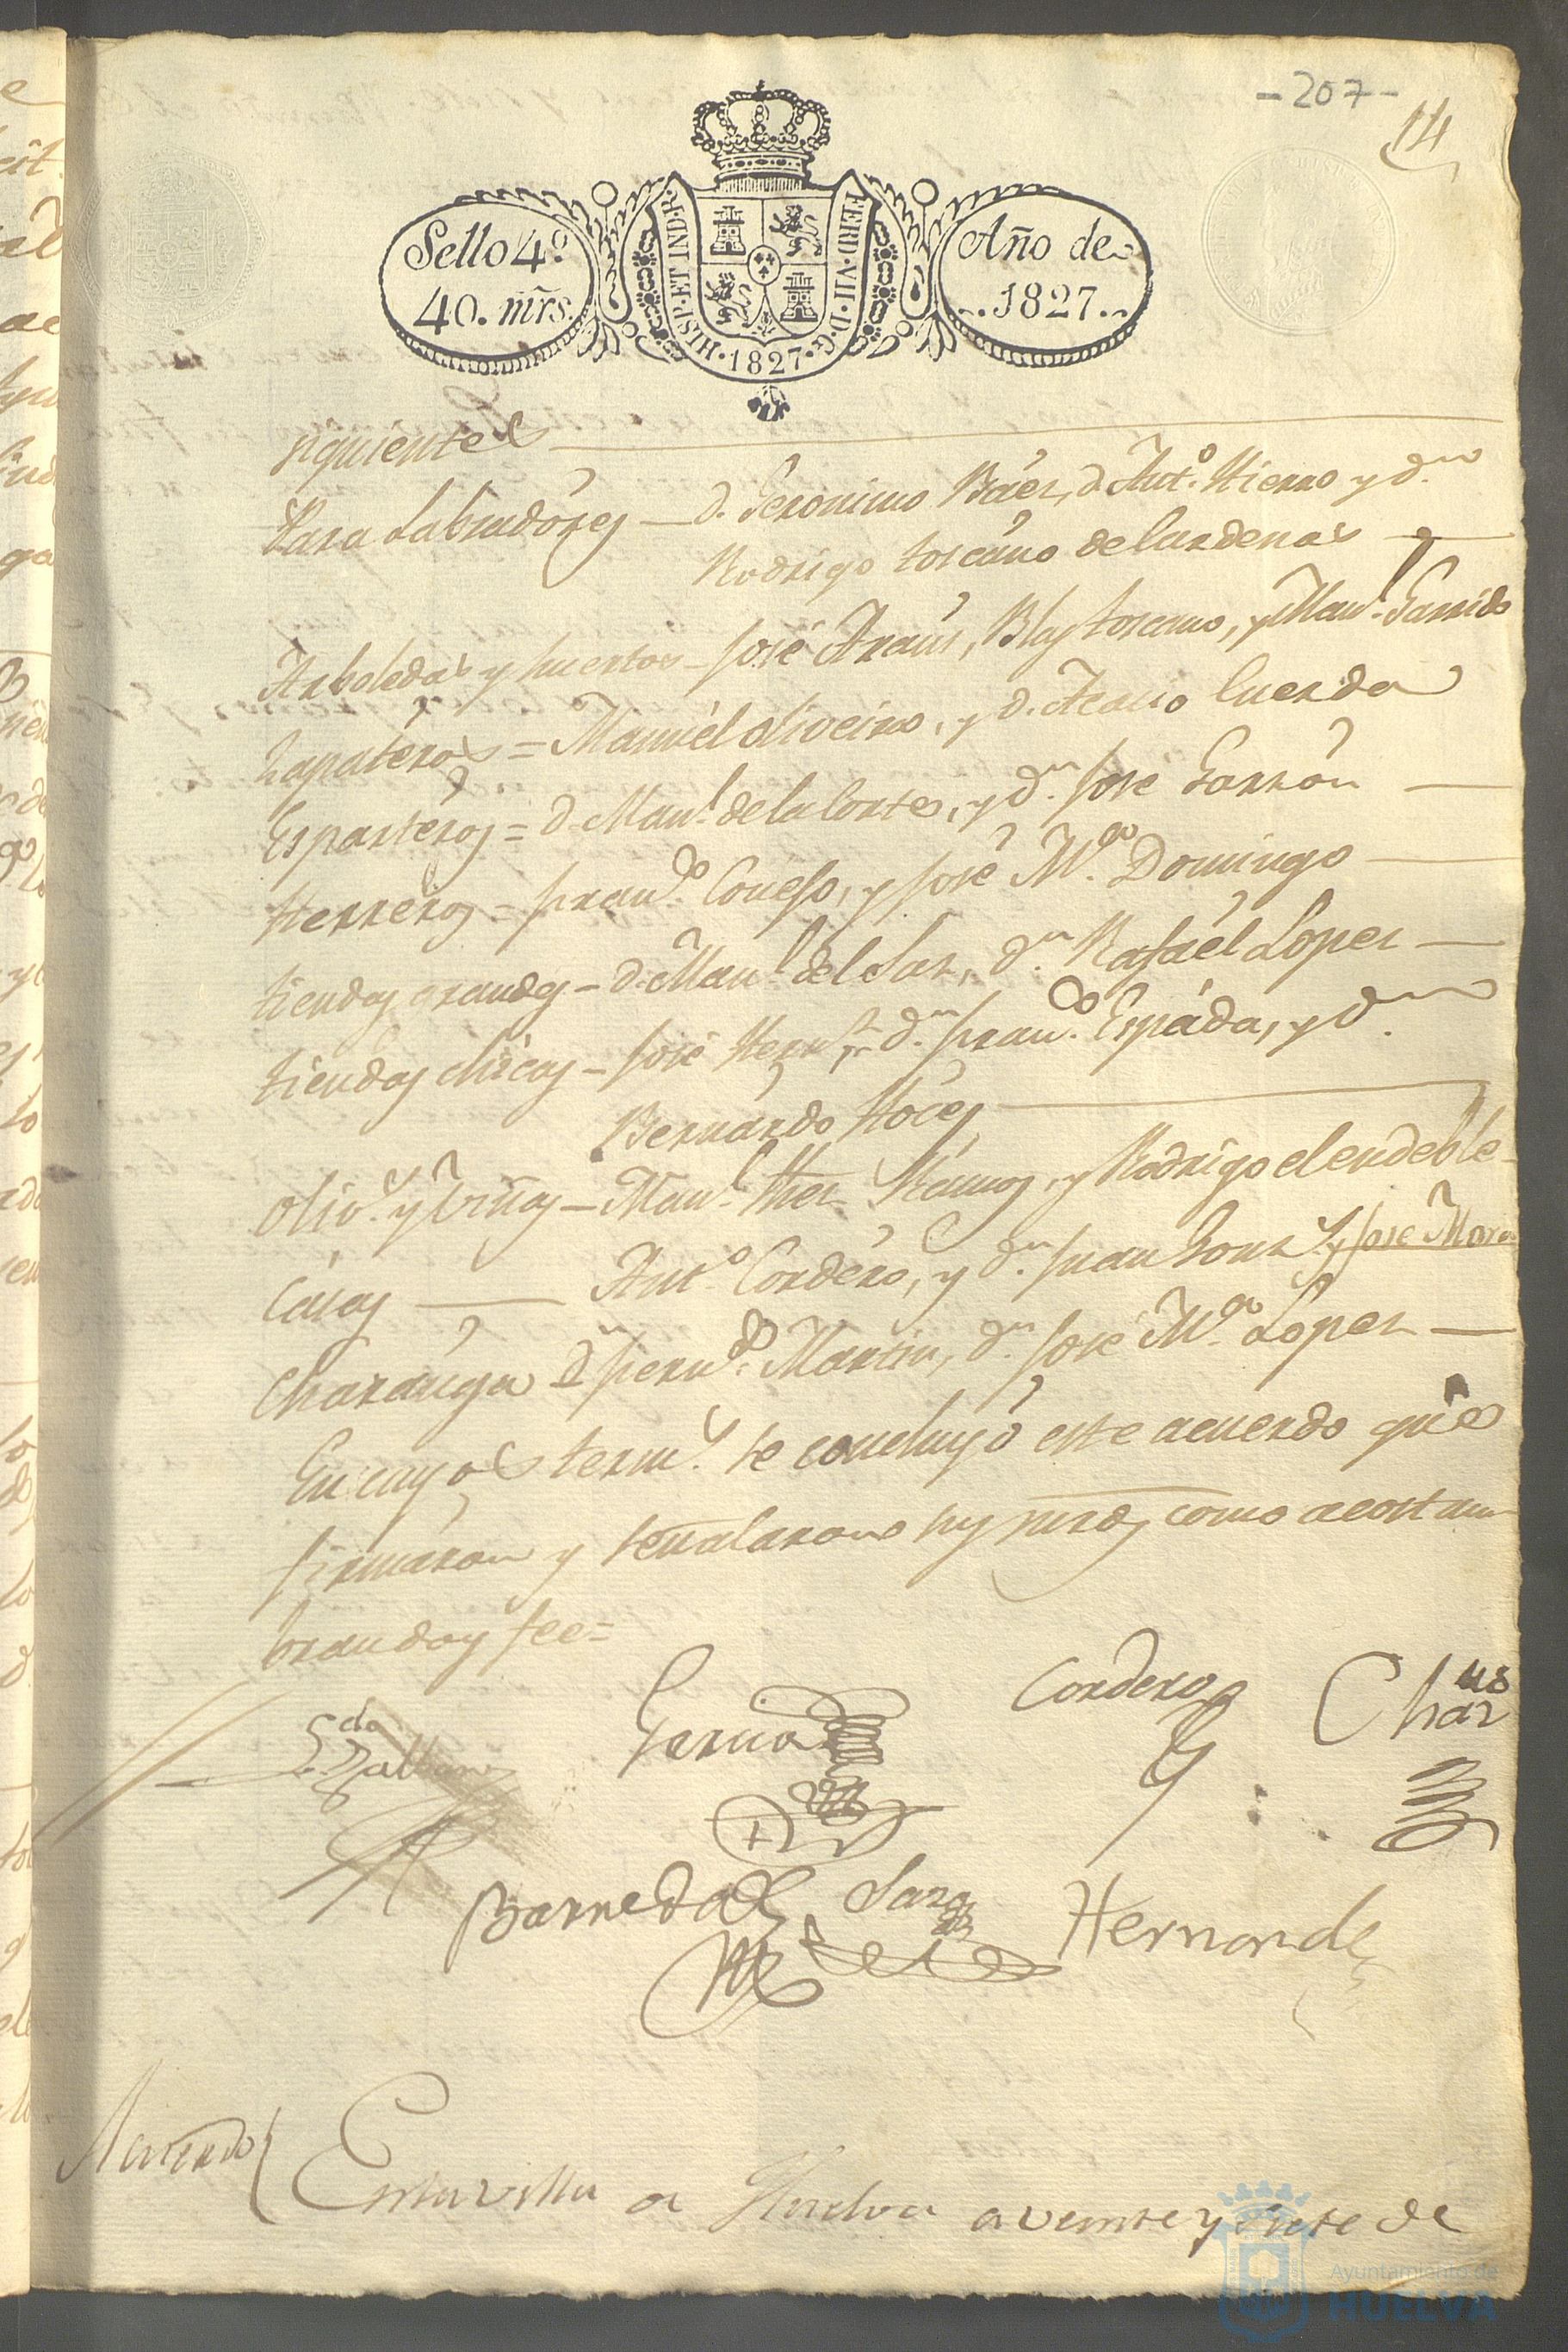 -207-
14
Sello 4º
40. mrs.
HISP·ET IND·R·
·1827·
FERD·VII·D·G·
Año de
1827
siguientes
Para Labradores — d. Geronimo Báez, d. Antº. Hierro y dn.
Rodrigo toscano de Cardenas
Arboledas y huertas — José Araus, Blas toscano, y Manl. Garrido
Zapateros = Manuel oliveira, y d. Cuerda
Esparteros = d. Manl. de la Corte, y dn. José Garzón
Herreros = franco. Conejo, y José Mª. Domingo
tiendas grandes — d. Manl. del Saz, dn. Rafaél Lopez
tiendas chicas — José Hernz. dn. franco. Espáda, y dn.
Bernárdo Hoces
oliv.s y Viñas — Manl. Ramos, y Rodrigo el endeble
Casas — Antº. Cordéro, y dn. Juan Gonz. y José Mora
Charanga dn ferndo. Martin, dn. José Mª. Lopez
En cuyos term.s se concluyó este acuerdo que
firmáron y señalaron sus mrds como acostum
bran doy fee=
Cordero
Barneda
Hernande
Acuerdo
En la villa de Huelva a veinte y siete de
Ayuntamiento de
HUELVA